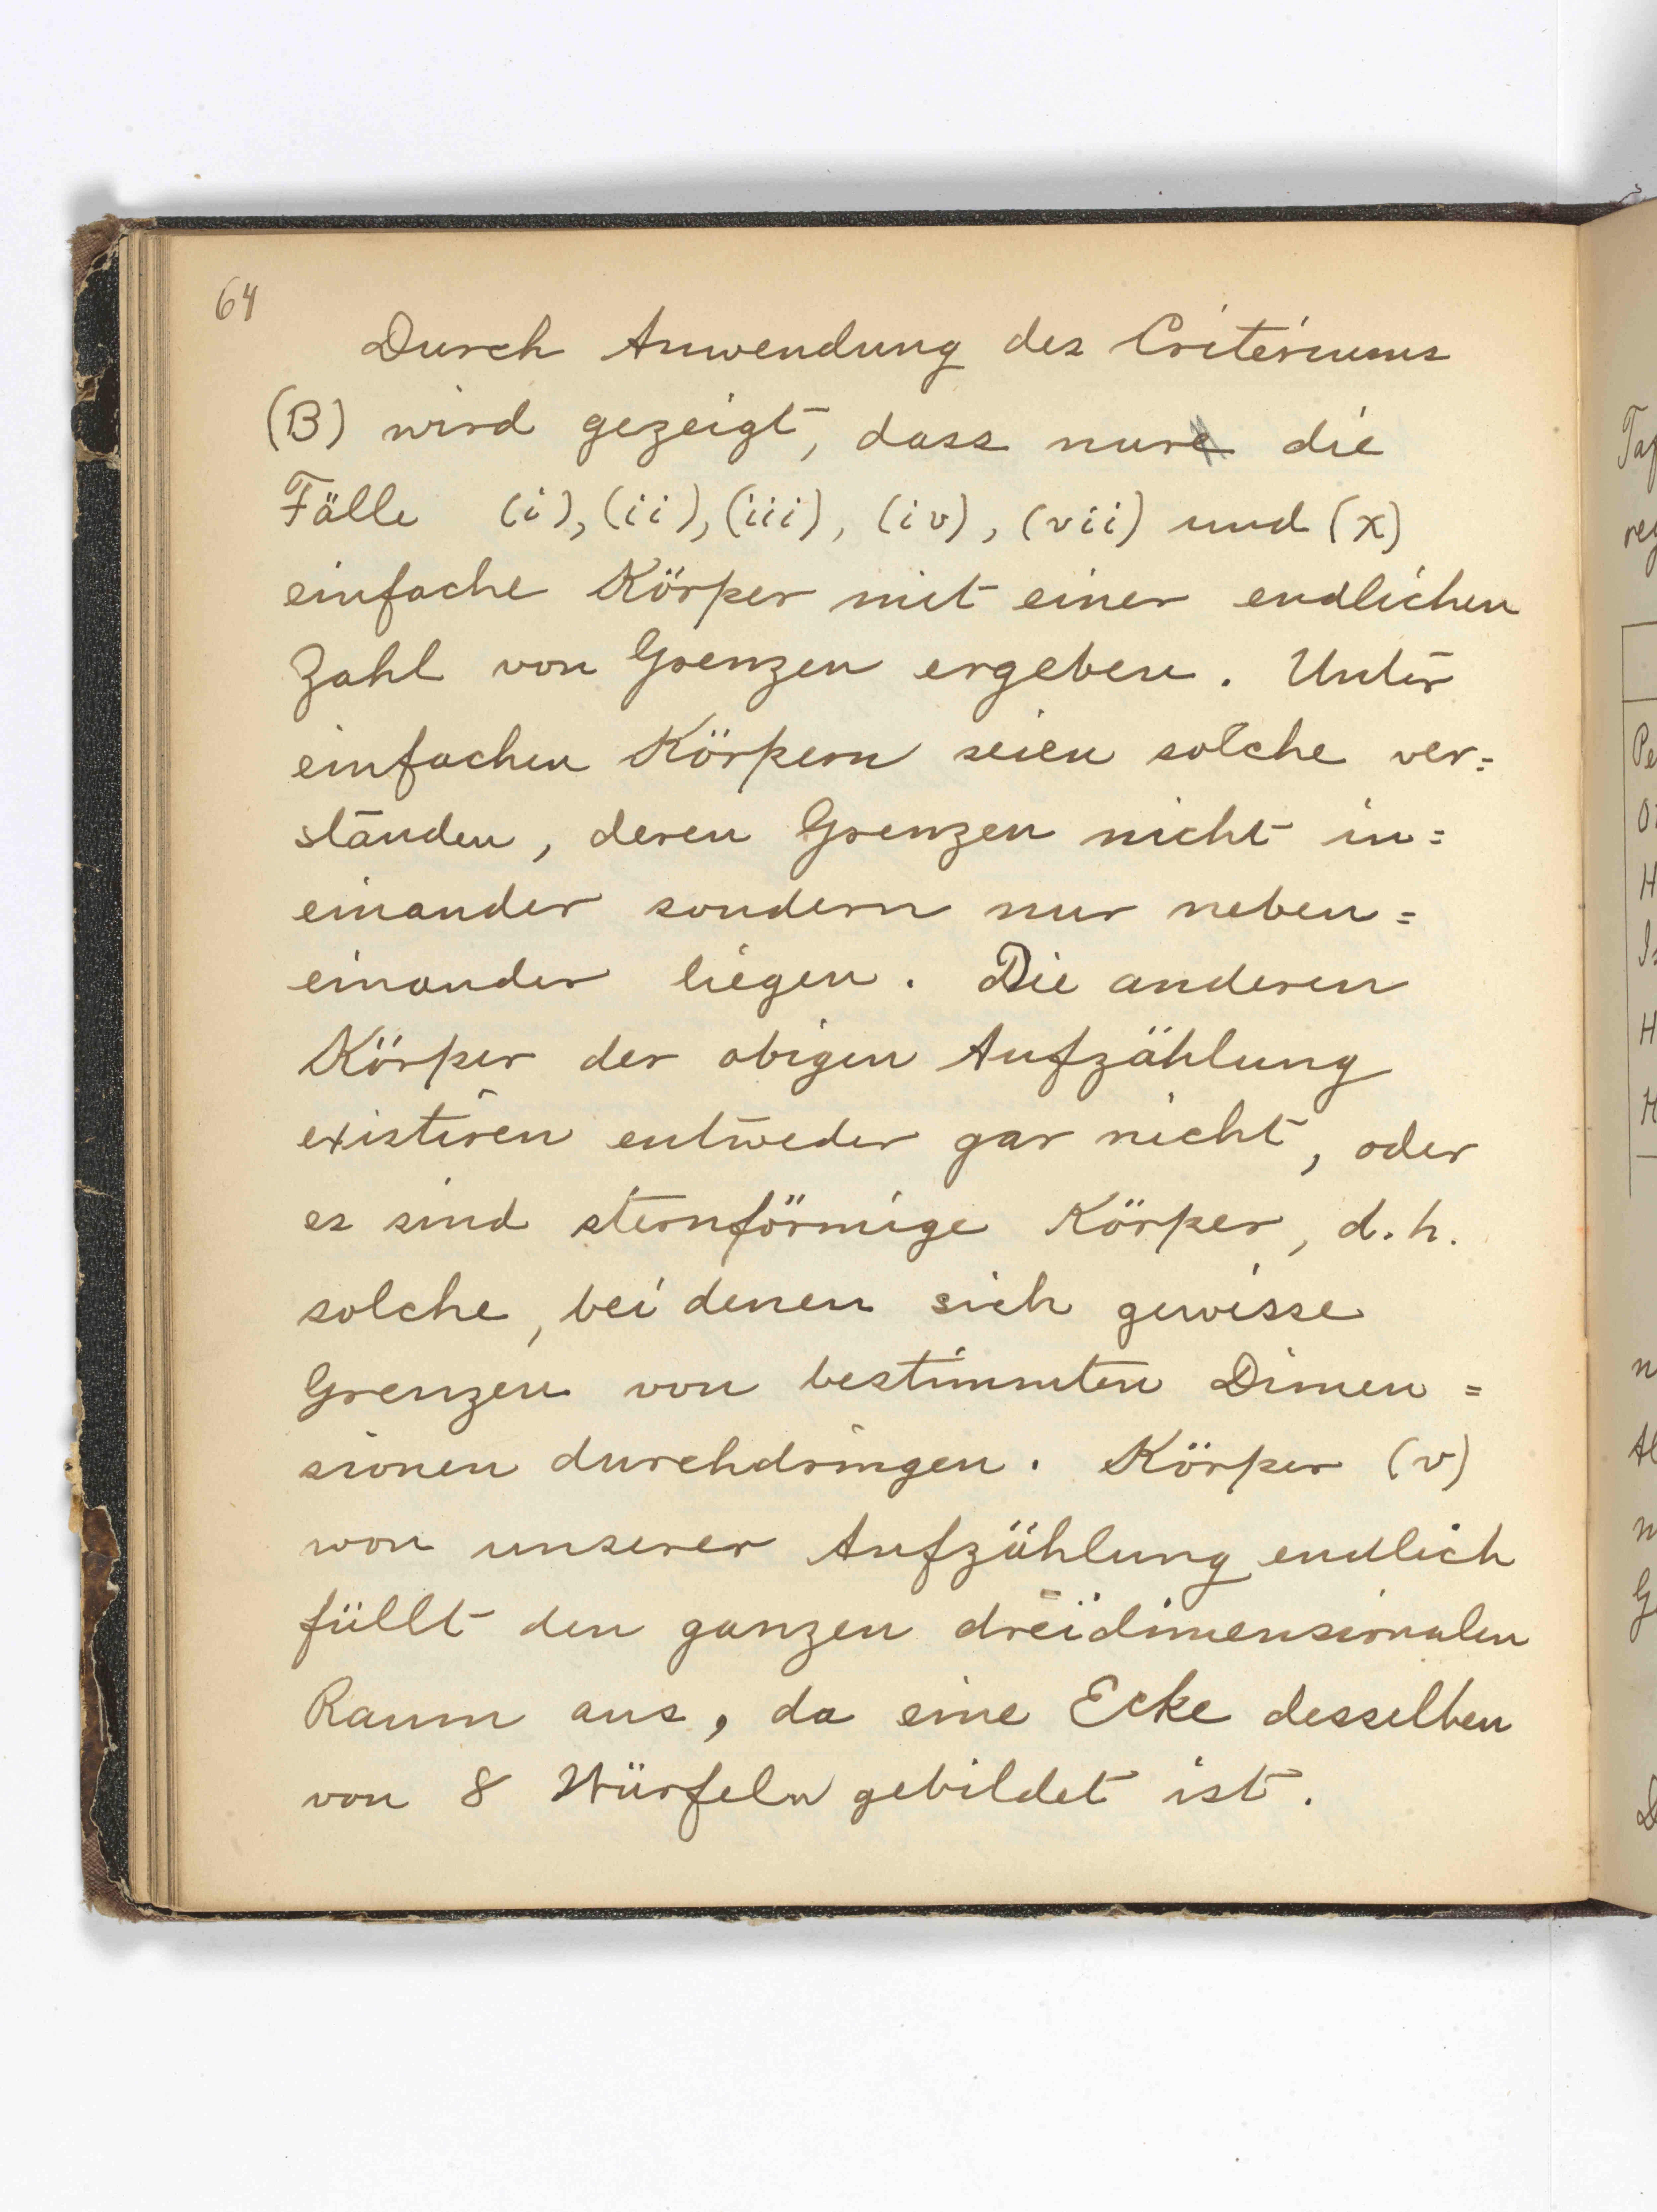 64
Durch Anwendung des Criteriums
(B) wird gezeigt, dass nur die
Fälle (i), (ii), (iii), (iv), (vii) und (x)
einfache Körper mit einer endlichen
Zahl von Grenzen ergeben. Unter
einfachen Körpern seien solche ver=
standen, deren Grenzen nicht in=
einander sondern nur neben=
einander liegen. Die anderen
Körper der obigen Aufzählung
existiren entweder gar nicht, oder
es sind sternförmige Körper, d.h.
solche, bei denen sich gewisse
Grenzen von bestimmten Dimen=
sionen durchdringen. Körper (v)
von unserer Aufzählung endlich
füllt den ganzen dreidimensionalen
Raum aus, da eine Ecke desselben
von 8 Würfeln gebildet ist.